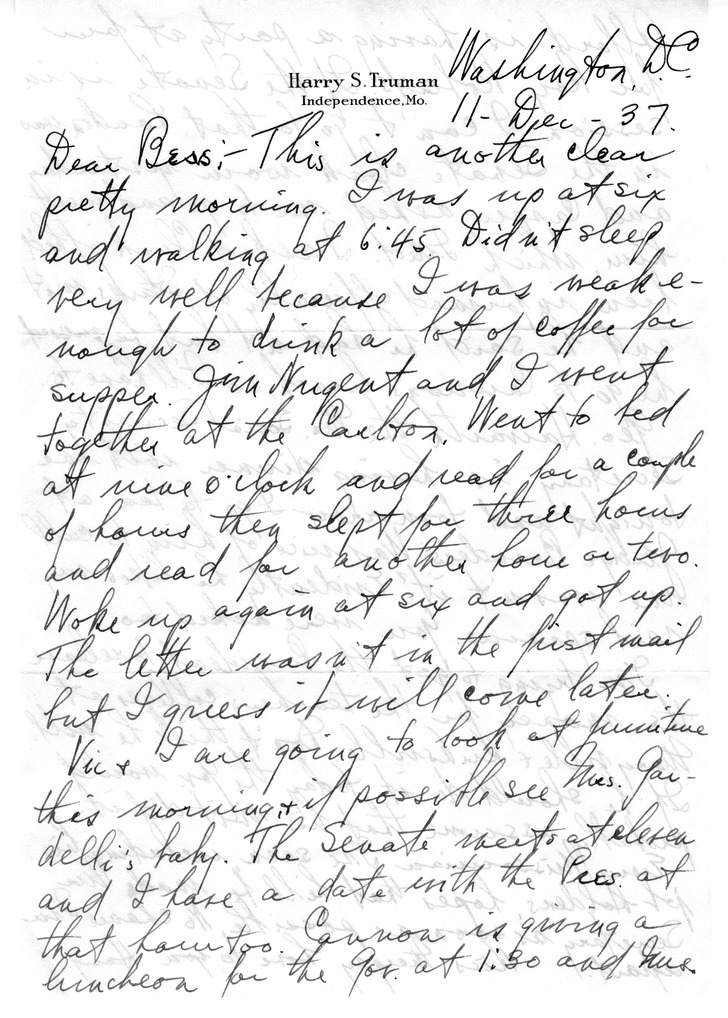 Harry S. Truman
Independence, Mo.
Washington, D.C.
11- Dec - 37.
Dear Bess;- This is another clear
pretty morning. I was up at six
and walking at 6:45. Didn't sleep
very well because I was weak e-
nough to drink a lot of coffee for
supper. Jim Nugent and I went
together at the Carlton. Went to bed
at nine o'clock and read for a couple
of hours then slept for three hours
and read for another hour or two.
Woke up again at six and got up.
The letter wasn't in the first mail
but I guess it will come later.
Vic & I are going to look at furniture
this morning & if possible see Mrs. Gar-
delli's baby. The Senate meets at eleven
and I have a date with the Pres. at
that hour too. Cannon is giving a
luncheon for the Gov. at 1:30 and Mrs.